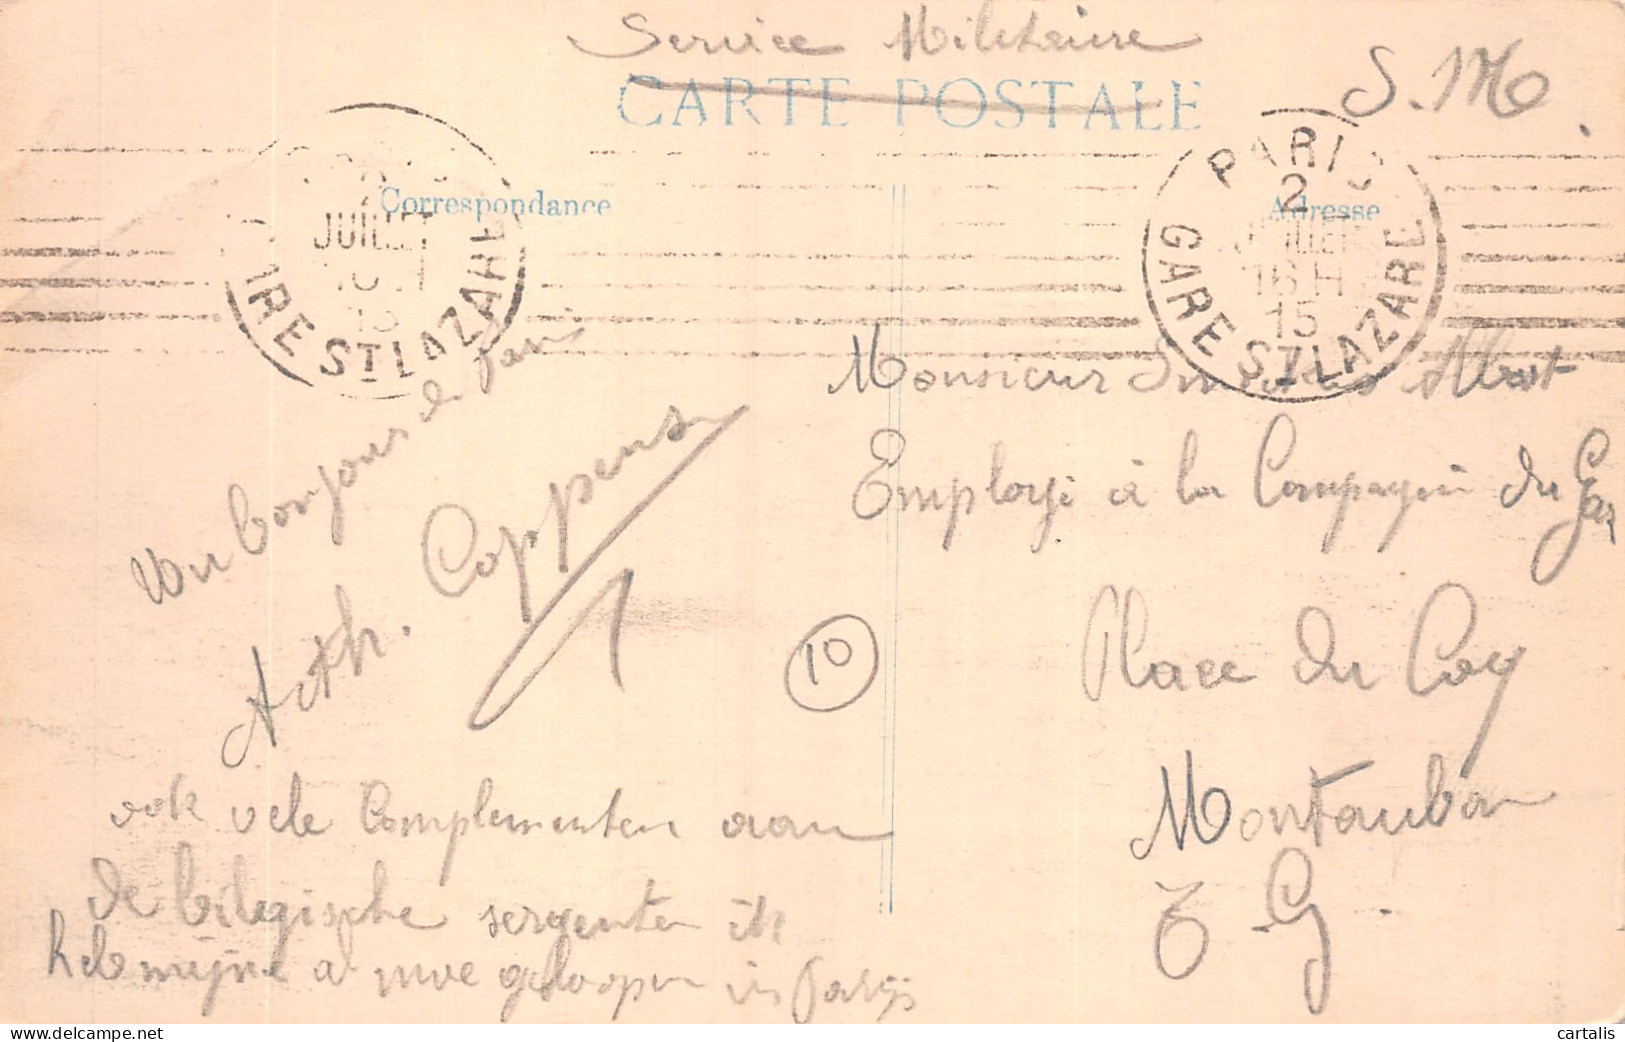 Service Militaire
S. M.
CARTE POSTALE
Correspondance
Adresse
JUILLET
ST LAZARE
PARIS
2
JUILLET
16 H
15
GARE ST LAZARE
Un bonjour de Paris
Arth. Coppens
10
ook vele Complementen aan
de bilegische sergenten ik
heb mijne a moe geloopen in Parijs
Monsieur Albert
Employé à la Compagnie du Gaz
Place du Coq
Montauban
T G.
cartalis